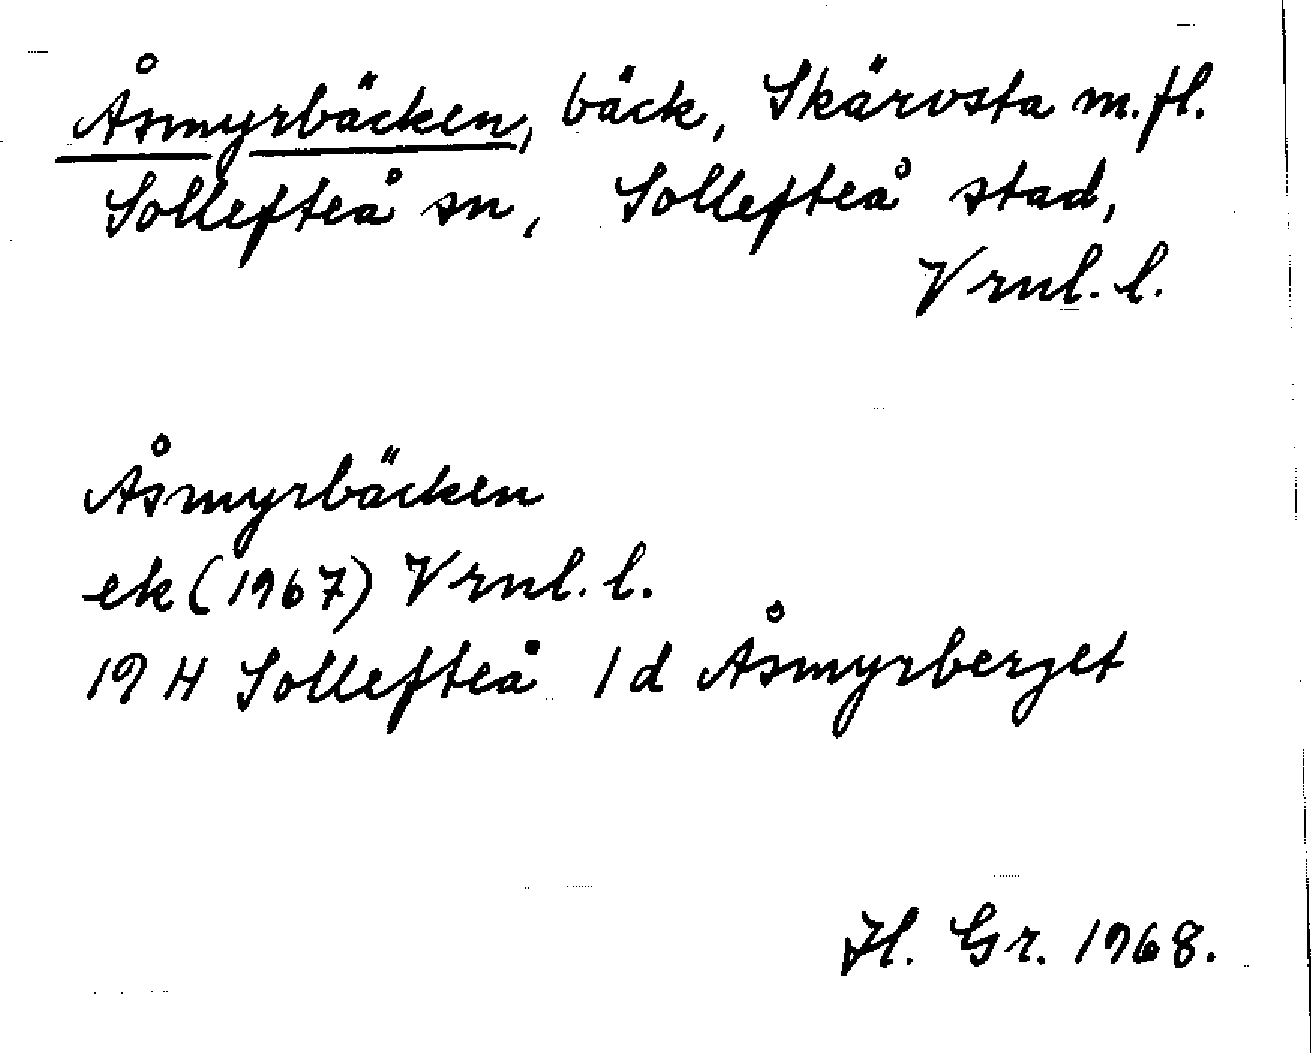 Åsmyrbäcken, bäck, Skärvsta m.fl.
Sollefteå sn, Sollefteå stad,
Vrnl. l.
Åsmyrbäcken
ek (1967) Vrnl. l.
19 H Sollefteå 1 d Åsmyrberget
Hl. Gr. 1968.